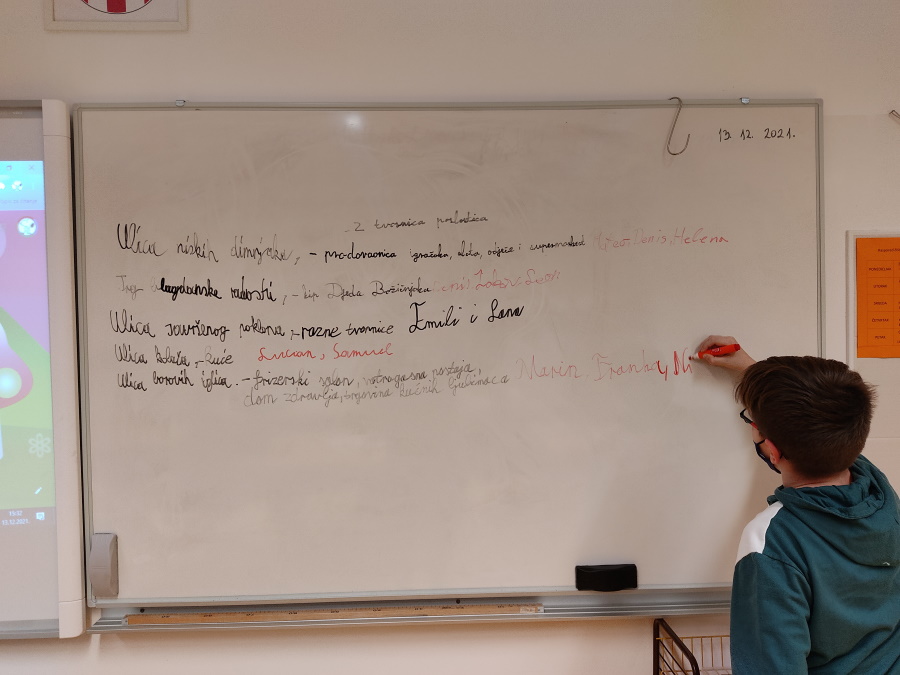 13. 12. 2021.
2 tvornica poslastica
Ulica niskih dimnjaka, - prodavaonica igračaka, alata, odjeće i supermarket Denis Helena
Trg blagdanske radosti, - kip Djeda Božićnjaka
Ulica savršenog poklona, - razne tvornice Emili i Lana
Ulica kolača, - kuće Lucian, Samuel
Ulica borovih iglica. - frizerski salon, vatrogasna postaja,
dom zdravlja, trgovina kućnih ljubimaca Marin, Franka, Ni